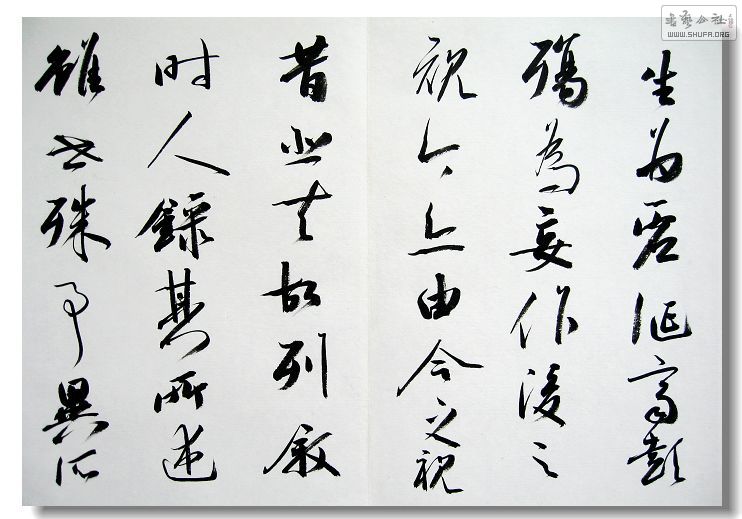 生為虛誕齊彭
殤為妄作後之
視今亦由今之視
昔悲夫故列叙
時人錄其所述
雖世殊事異所
書藝公社
WWW.SHUFA.ORG